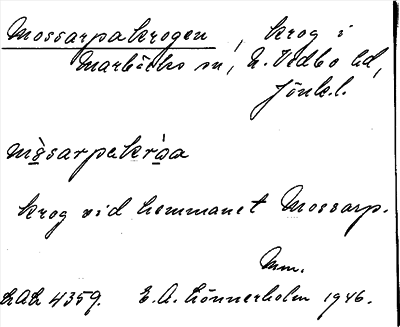 Mossarpakrogen, krog i
Marbäcks sn, N. Vedbo hd,
Jönk.l.
mòsarpakròa
krog vid hemmanet Mossarp.
Mm.
LAL 4359. E. A. Lönnerholm 1946.